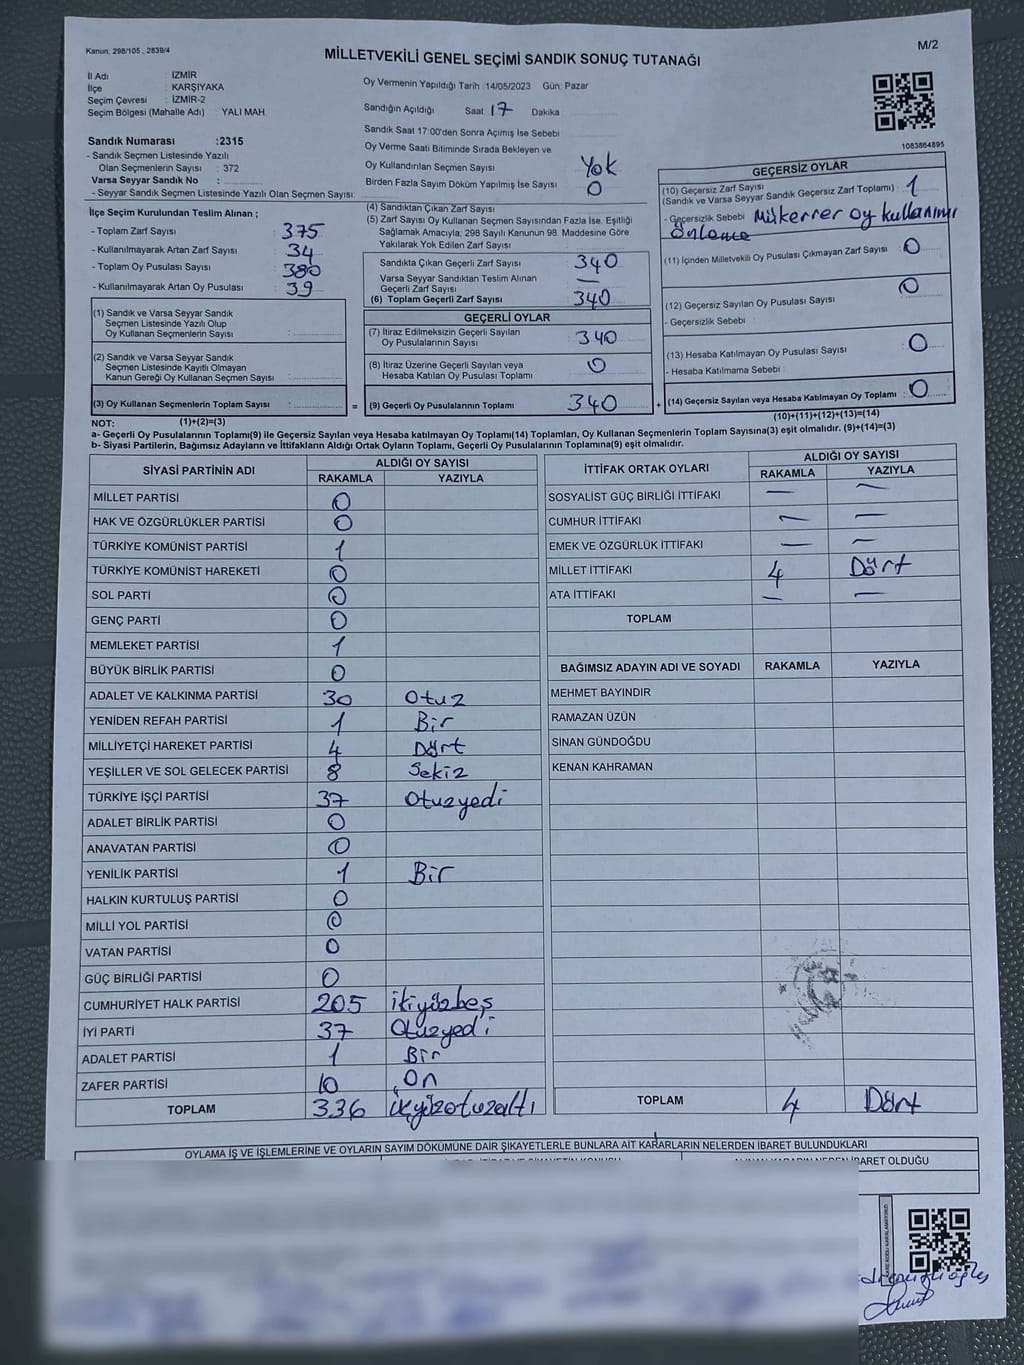 Kanun: 298/105 , 2839/4
MİLLETVEKİLİ GENEL SEÇİMİ SANDIK SONUÇ TUTANAĞI
M/2
İl Adı : İZMİR
İlçe : KARŞIYAKA
Seçim Çevresi : İZMİR-2
Seçim Bölgesi (Mahalle Adı) YALI MAH
Sandık Numarası :2315
- Sandık Seçmen Listesinde Yazılı
Olan Seçmenlerin Sayısı : 372
Varsa Seyyar Sandık No :
- Seyyar Sandık Seçmen Listesinde Yazılı Olan Seçmen Sayısı:
İlçe Seçim Kurulundan Teslim Alınan ;
- Toplam Zarf Sayısı : 375
- Kullanılmayarak Artan Zarf Sayısı : 34
- Toplam Oy Pusulası Sayısı : 380
- Kullanılmayarak Artan Oy Pusulası : 39
(1) Sandık ve Varsa Seyyar Sandık
Seçmen Listesinde Yazılı Olup
Oy Kullanan Seçmenlerin Sayısı :
(2) Sandık ve Varsa Seyyar Sandık
Seçmen Listesinde Kayıtlı Olmayan
Kanun Gereği Oy Kullanan Seçmen Sayısı :
(3) Oy Kullanan Seçmenlerin Toplam Sayısı :
(1)+(2)=(3)
Oy Vermenin Yapıldığı Tarih :14/05/2023 Gün: Pazar
Sandığın Açıldığı Saat 17 Dakika
Sandık Saat 17:00'den Sonra Açımış İse Sebebi
Oy Verme Saati Bitiminde Sırada Bekleyen ve
Oy Kullandırılan Seçmen Sayısı Yok
Birden Fazla Sayım Döküm Yapılmış İse Sayısı 0
(4) Sandıktan Çıkan Zarf Sayısı
(5) Zarf Sayısı Oy Kullanan Seçmen Sayısından Fazla İse, Eşitliği
Sağlamak Amacıyla; 298 Sayılı Kanunun 98. Maddesine Göre
Yakılarak Yok Edilen Zarf Sayısı
Sandıkta Çıkan Geçerli Zarf Sayısı 340
Varsa Seyyar Sandıktan Teslim Alınan
Geçerli Zarf Sayısı —
(6) Toplam Geçerli Zarf Sayısı 340
GEÇERLİ OYLAR
(7) İtiraz Edilmeksizin Geçerli Sayılan
Oy Pusulalarının Sayısı 340
(8) İtiraz Üzerine Geçerli Sayılan veya
Hesaba Katılan Oy Pusulası Toplamı 0
= (9) Geçerli Oy Pusulalarının Toplamı 340 +
1083864895
GEÇERSİZ OYLAR
(10) Geçersiz Zarf Sayısı
(Sandık ve Varsa Seyyar Sandık Geçersiz Zarf Toplamı) : 1
- Geçersizlik Sebebi Mükerrer oy kullanımı
önleme
(11) İçinden Milletvekili Oy Pusulası Çıkmayan Zarf Sayısı 0
(12) Geçersiz Sayılan Oy Pusulası Sayısı 0
- Geçersizlik Sebebi :
(13) Hesaba Katılmayan Oy Pusulası Sayısı 0
- Hesaba Katılmama Sebebi :
(14) Geçersiz Sayılan veya Hesaba Katılmayan Oy Toplamı : 0
(10)+(11)+(12)+(13)=(14)
NOT:
a- Geçerli Oy Pusulalarının Toplamı(9) ile Geçersiz Sayılan veya Hesaba katılmayan Oy Toplamı(14) Toplamları, Oy Kullanan Seçmenlerin Toplam Sayısına(3) eşit olmalıdır. (9)+(14)=(3)
b- Siyasi Partilerin, Bağımsız Adayların ve İttifakların Aldığı Ortak Oyların Toplamı, Geçerli Oy Pusulalarının Toplamına(9) eşit olmalıdır.
SİYASİ PARTİNİN ADI ALDIĞI OY SAYISI
RAKAMLA YAZIYLA
MİLLET PARTİSİ 0
HAK VE ÖZGÜRLÜKLER PARTİSİ 0
TÜRKİYE KOMÜNİST PARTİSİ 1
TÜRKİYE KOMÜNİST HAREKETİ 0
SOL PARTİ 0
GENÇ PARTİ 0
MEMLEKET PARTİSİ 1
BÜYÜK BİRLİK PARTİSİ 0
ADALET VE KALKINMA PARTİSİ 30 Otuz
YENİDEN REFAH PARTİSİ 1 Bir
MİLLİYETÇİ HAREKET PARTİSİ 4 Dört
YEŞİLLER VE SOL GELECEK PARTİSİ 8 Sekiz
TÜRKİYE İŞÇİ PARTİSİ 37 Otuzyedi
ADALET BİRLİK PARTİSİ 0
ANAVATAN PARTİSİ 0
YENİLİK PARTİSİ 1 Bir
HALKIN KURTULUŞ PARTİSİ 0
MİLLİ YOL PARTİSİ 0
VATAN PARTİSİ 0
GÜÇ BİRLİĞİ PARTİSİ 0
CUMHURİYET HALK PARTİSİ 205 ikiyüzbeş
İYİ PARTİ 37 Otuzyedi
ADALET PARTİSİ 1 Bir
ZAFER PARTİSİ 10 On
TOPLAM 336 üçyüzotuzaltı
İTTİFAK ORTAK OYLARI ALDIĞI OY SAYISI
RAKAMLA YAZIYLA
SOSYALİST GÜÇ BİRLİĞİ İTTİFAKI — —
CUMHUR İTTİFAKI — —
EMEK VE ÖZGÜRLÜK İTTİFAKI — —
MİLLET İTTİFAKI 4 Dört
ATA İTTİFAKI — —
TOPLAM
BAĞIMSIZ ADAYIN ADI VE SOYADI RAKAMLA YAZIYLA
MEHMET BAYINDIR
RAMAZAN ÜZÜN
SİNAN GÜNDOĞDU
KENAN KAHRAMAN
TOPLAM 4 Dört
OYLAMA İŞ VE İŞLEMLERİNE VE OYLARIN SAYIM DÖKÜMÜNE DAİR ŞİKAYETLERLE BUNLARA AİT KARARLARIN NELERDEN İBARET BULUNDUKLARI
İBARET OLDUĞU